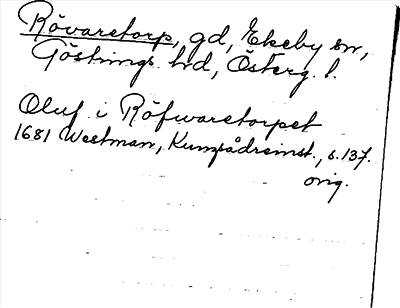 Rövaretorp, gd, Ekeby sn,
Göstrings hd, Österg. l.
Oluf i Röfwaretorpet
1681 Westman, Kumpådreinst., s. 137.
orig.